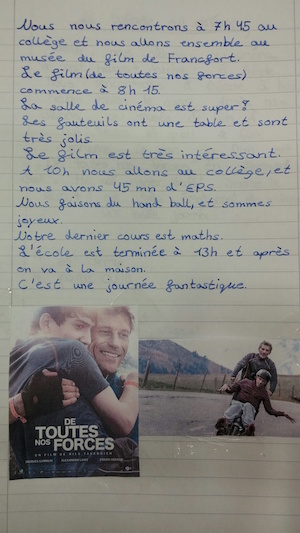 Nous nous rencontrons à 7h 45 au
collège et nous allons ensemble au
musée du film de Francfort.
Le film (de toutes nos forces)
commence à 8h 15.
La salle de cinéma est super!
Les fauteuils ont une table et sont
très jolis.
Le film est très intéressant.
A 10h nous allons au collège, et
nous avons 45 mn d'EPS.
Nous faisons du hand ball, et sommes
joyeux.
Notre dernier cours est maths.
L'école est terminée à 13h et après
on va à la maison.
C'est une journée fantastique.
DE
TOUTES
NOS FORCES
UN FILM DE NILS TAVERNIER